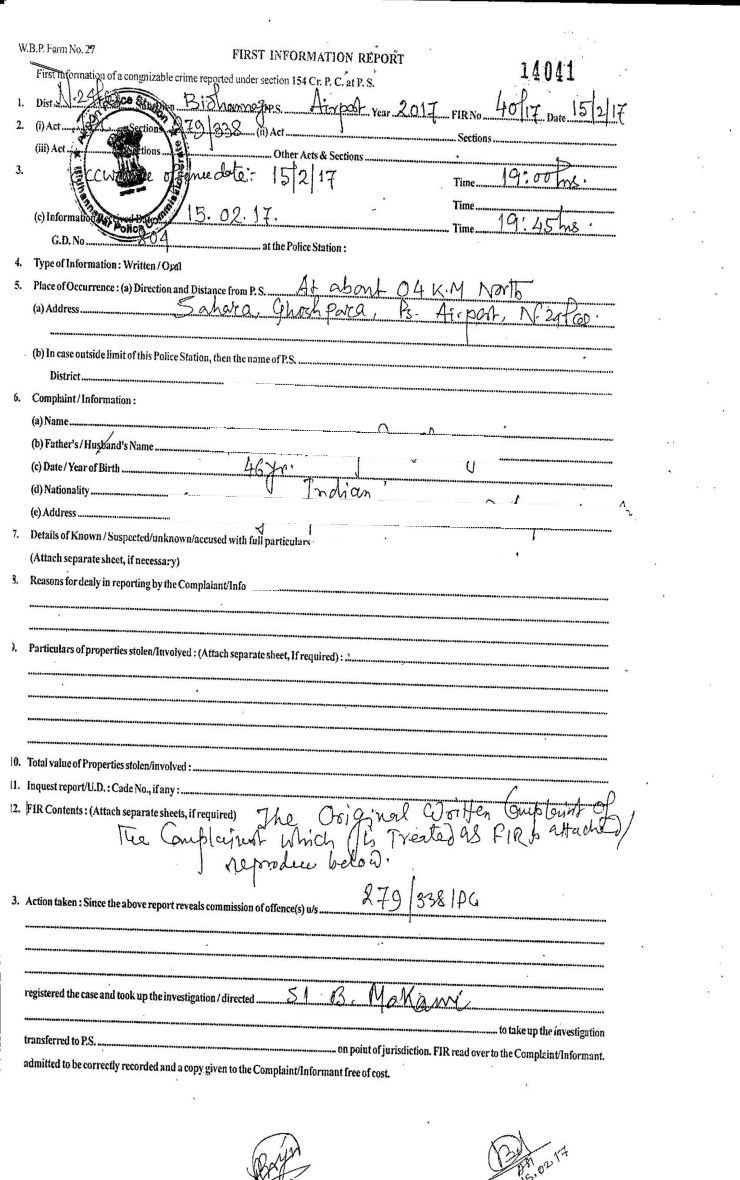 W.B.P. Form No. 27
FIRST INFORMATION REPORT
14041
First Information of a congnizable crime reported under section 154 Cr. P. C. at P. S.
1. Dist. N-24 Bidhannagar P.S. Airport Year 2017 FIR No 40/17 Date 15/2/17
2. (i) Act Sections 279/338 (ii) Act Sections
(iii) Act Sections Other Acts & Sections
3. date:- 15/2/17 Time 19:00 hrs.
Time
(c) Information Received Date 15.02.17. Time 19:45 hrs.
G.D. No. 804 at the Police Station :
4. Type of Information : Written / Oral
5. Place of Occurrence : (a) Direction and Distance from P. S. At about 04 K.M North
(a) Address Sahara, Ghoshpara, Ps. Airport, N-24
(b) In case outside limit of this Police Station, then the name of P.S.
District
6. Complaint / Information :
(a) Name
(b) Father's / Husband's Name
(c) Date / Year of Birth 46 yr.
(d) Nationality Indian
(e) Address
7. Details of Known / Suspected/unknown/accused with full particulars
(Attach separate sheet, if necessary)
8. Reasons for dealy in reporting by the Complaiant/Info
). Particulars of properties stolen/Involyed : (Attach separate sheet, If required) :
10. Total value of Properties stolen/involved :
11. Inquest report/U.D. : Cade No., if any :
12. FIR Contents : (Attach separate sheets, if required) The Original Written Complaint of
The Complainant which is Treated as FIR is attached/
reproduce below.
3. Action taken : Since the above report reveals commission of offence(s) u/s 279/338 IPC
registered the case and took up the investigation / directed SI B. Makami
to take up the investigation
transferred to P.S. on point of jurisdiction. FIR read over to the Complaint/Informant.
admitted to be correctly recorded and a copy given to the Complaint/Informant free of cost.
15.02.17